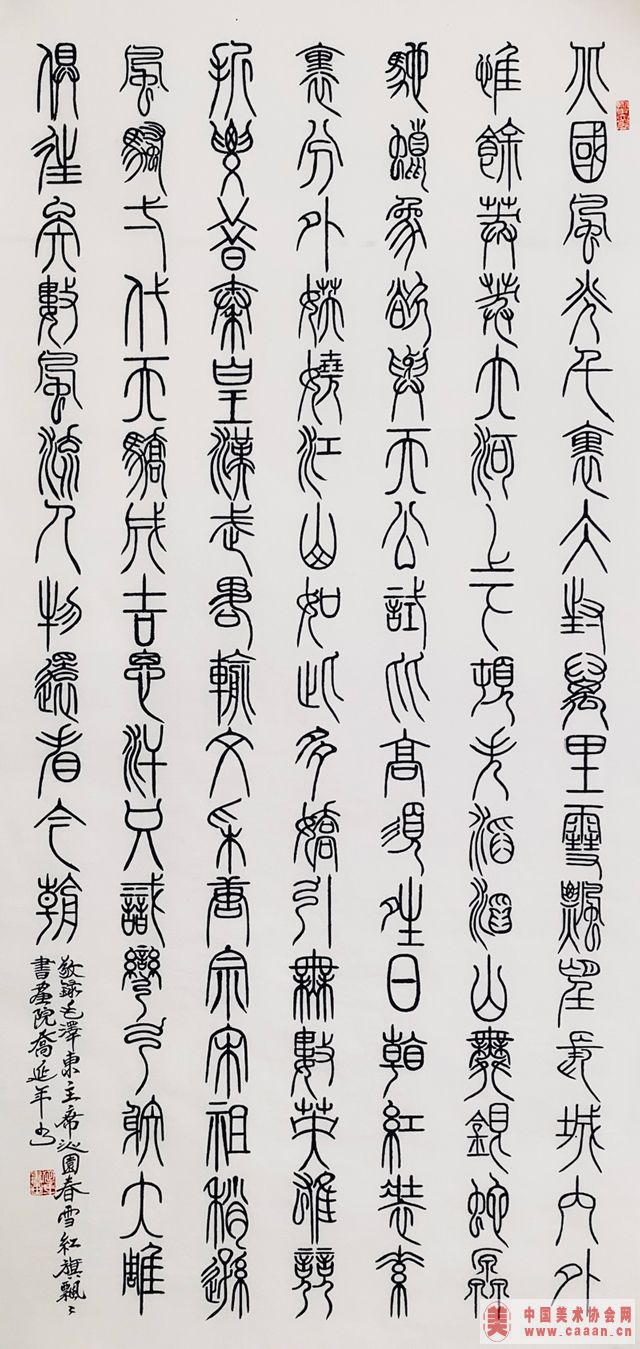 北國風光千裏冰封萬里雪飄望長城內外
惟餘莽莽大河上下頓失滔滔山舞銀蛇原
馳蠟象欲與天公試比高須晴日看紅裝素
裹分外妖嬈江山如此多嬌引無數英雄競
折腰惜秦皇漢武略輸文采唐宗宋祖稍遜
風騷一代天驕成吉思汗只識彎弓射大雕
俱往矣數風流人物還看今朝
敬錄毛澤東主席沁園春雪紅旗飄飄
書畫院喬延年書
美 中国美术协会网
www.caaan.cn